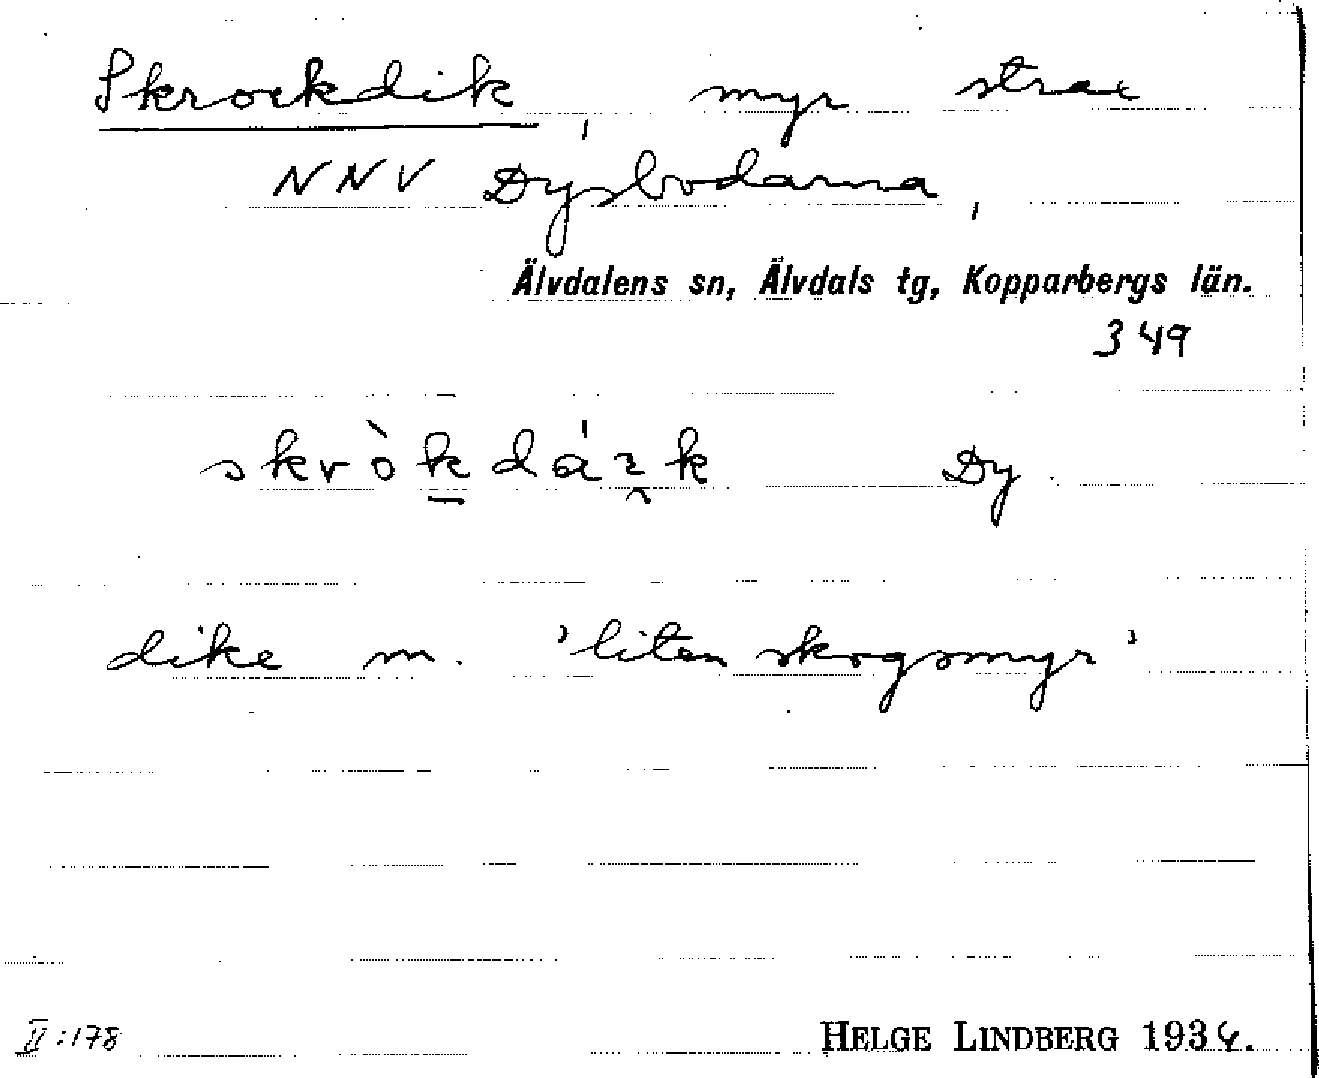 Skrockdik, myr strax
NNV Dysbodarna,
Älvdalens sn, Älvdals tg, Kopparbergs län.
349
skròk̲dáık Dy
dike m. 'liten skogsmyr'
II:178 HELGE LINDBERG 1934.